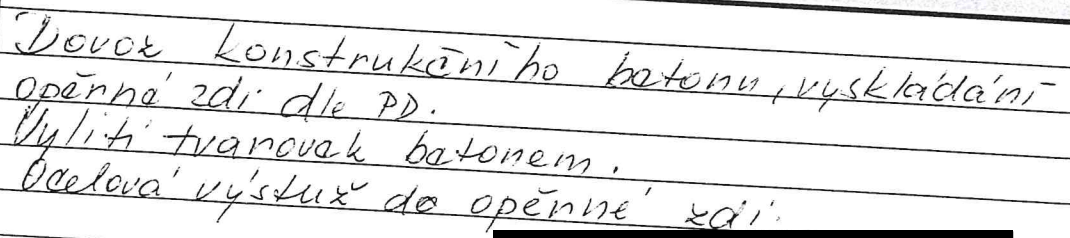 Dovoz konstrukčního betonu, vyskládání
opěrné zdi dle PD.
Vylití tvarovek betonem.
Ocelová výstuž do opěrné zdi.